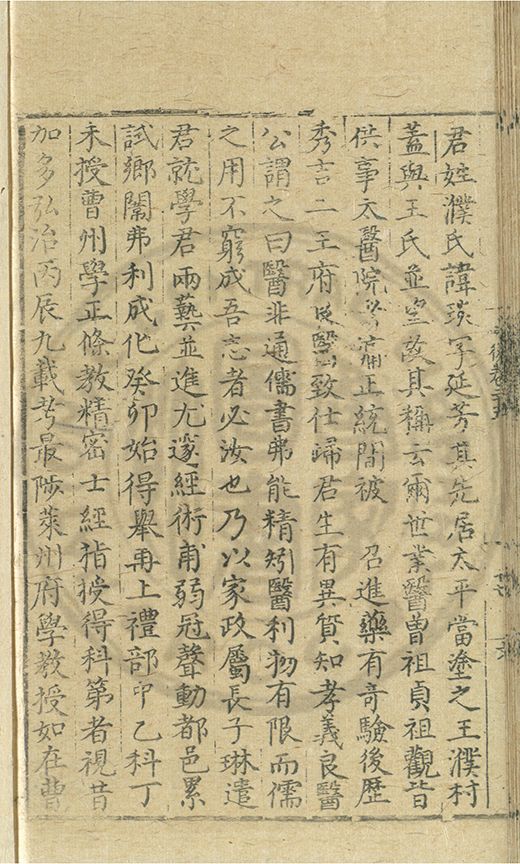 君姓濮氏諱琰字延芳其先居太平當塗之王濮村
蓋與王氏並望故其稱云爾世業醫曾祖貞祖觀皆
供事太醫院考潚正統間被　召進藥有奇驗後歷
秀吉二王府良醫致仕歸君生有異質知孝義良醫
公謂之曰醫非通儒書弗能精矧醫利物有限而儒
之用不窮成吾志者必汝也乃以家政屬長子琳遣
君就學君兩藝並進尤邃經術甫弱冠聲動都邑累
試鄉闈弗利成化癸卯始得舉再上禮部中乙科丁
未授曹州學正條教精密士經指授得科第者視昔
加多弘治丙辰九載考最陟萊州府學教授如在曹
後卷